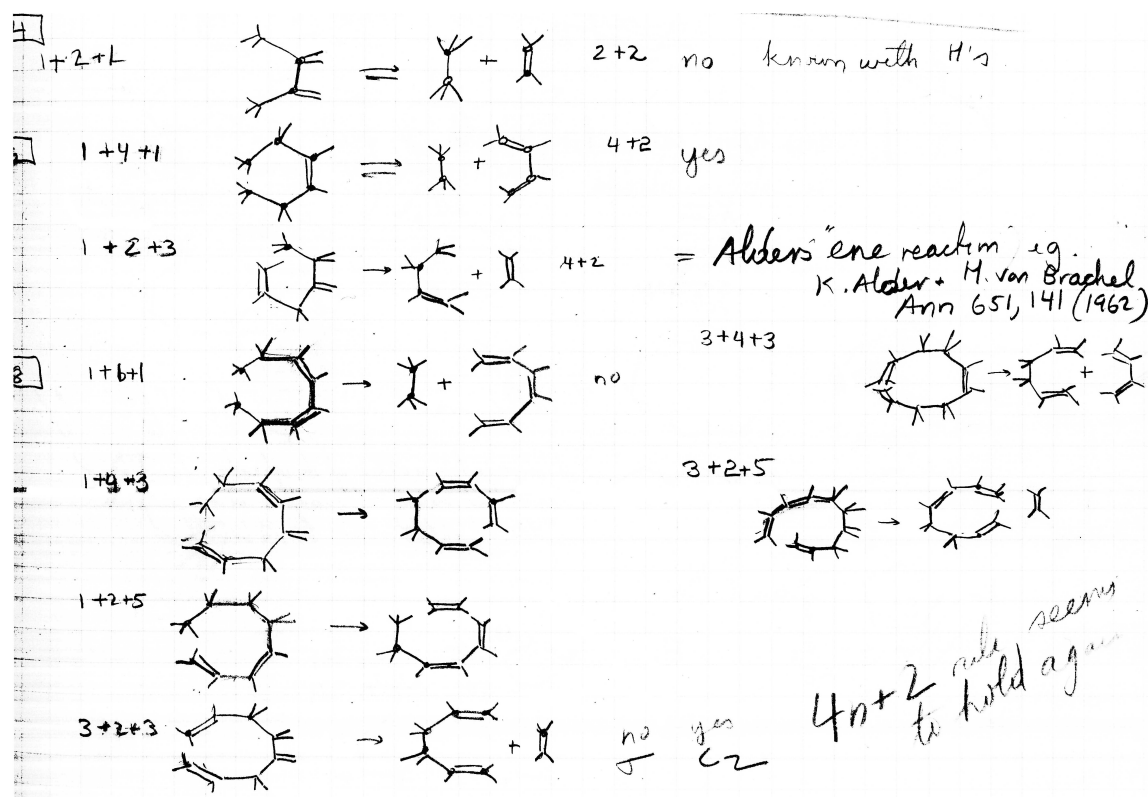 4
1+2+1 ⇌ + 2+2 no known with H's
1+4+1 ⇌ + 4+2 yes
1+2+3 → + 4+2 = Alders "ene reaction" eg.
K. Alder + H. von Brachel
Ann 651, 141 (1962)
3+4+3 → +
8 1+6+1 → + no
1+4+3 →
3+2+5 →
1+2+5 →
3+2+3 → + no yes
σ C2
4n+2 rule seems
to hold again